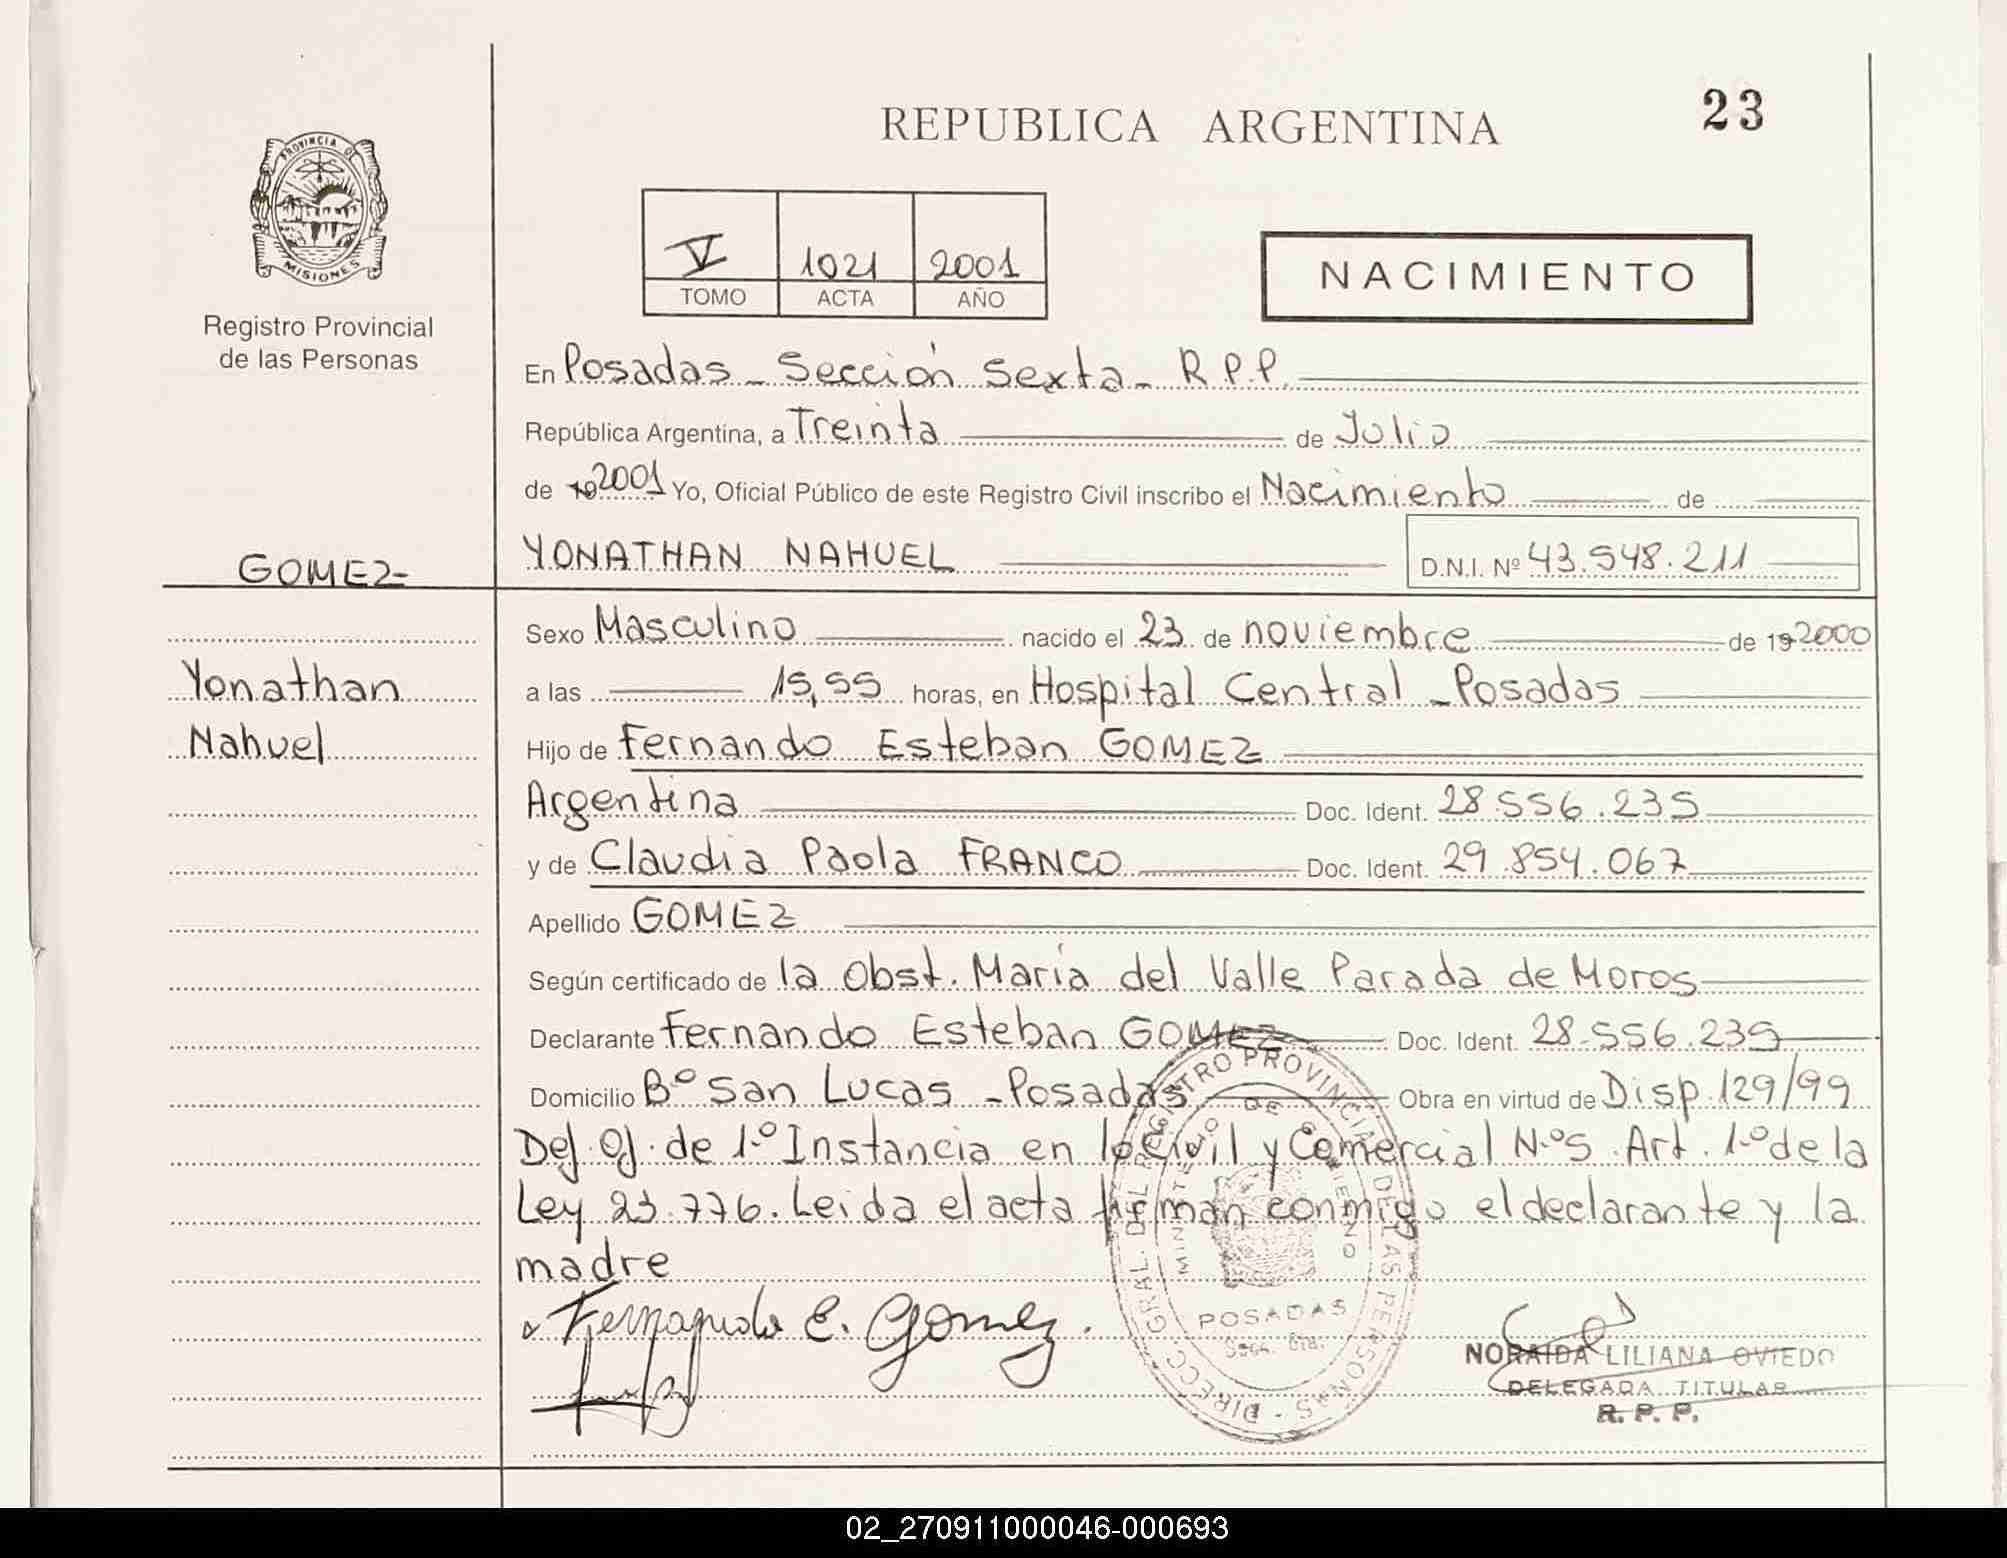 REPUBLICA ARGENTINA
23
PROVINCIA DE
MISIONES
Registro Provincial
de las Personas
V 1021 2001
TOMO ACTA AÑO
NACIMIENTO
En Posadas - Sección Sexta - R.P.P.
República Argentina, a Treinta de Julio
de 192001 Yo, Oficial Público de este Registro Civil inscribo el Nacimiento de
GOMEZ-
YONATHAN NAHUEL D.N.I. Nº 43.548.211
Sexo Masculino nacido el 23 de noviembre de 192000
Yonathan
a las 15,55 horas, en Hospital Central - Posadas
Nahuel
Hijo de Fernando Esteban GOMEZ
Argentina Doc. Ident. 28.556.235
y de Claudia Paola FRANCO Doc. Ident. 29.854.067
Apellido GOMEZ
Según certificado de la Obst. María del Valle Parada de Moros
Declarante Fernando Esteban GOMEZ Doc. Ident. 28.556.235
Domicilio Bº San Lucas - Posadas Obra en virtud de Disp. 129/99
Def. Of. de 1º Instancia en lo Civil y Comercial Nº 5. Art. 1º de la
Ley 23.776. Leida el acta firman conmigo el declarante y la
madre
Fernando E. Gomez.
DIRECC. GRAL. DEL REGISTRO PROVINCIAL DE LAS PERSONAS
MINISTERIO DE GOBIERNO
POSADAS
NORAIDA LILIANA OVIEDO
DELEGADA TITULAR
R. P. P.
02_270911000046-000693